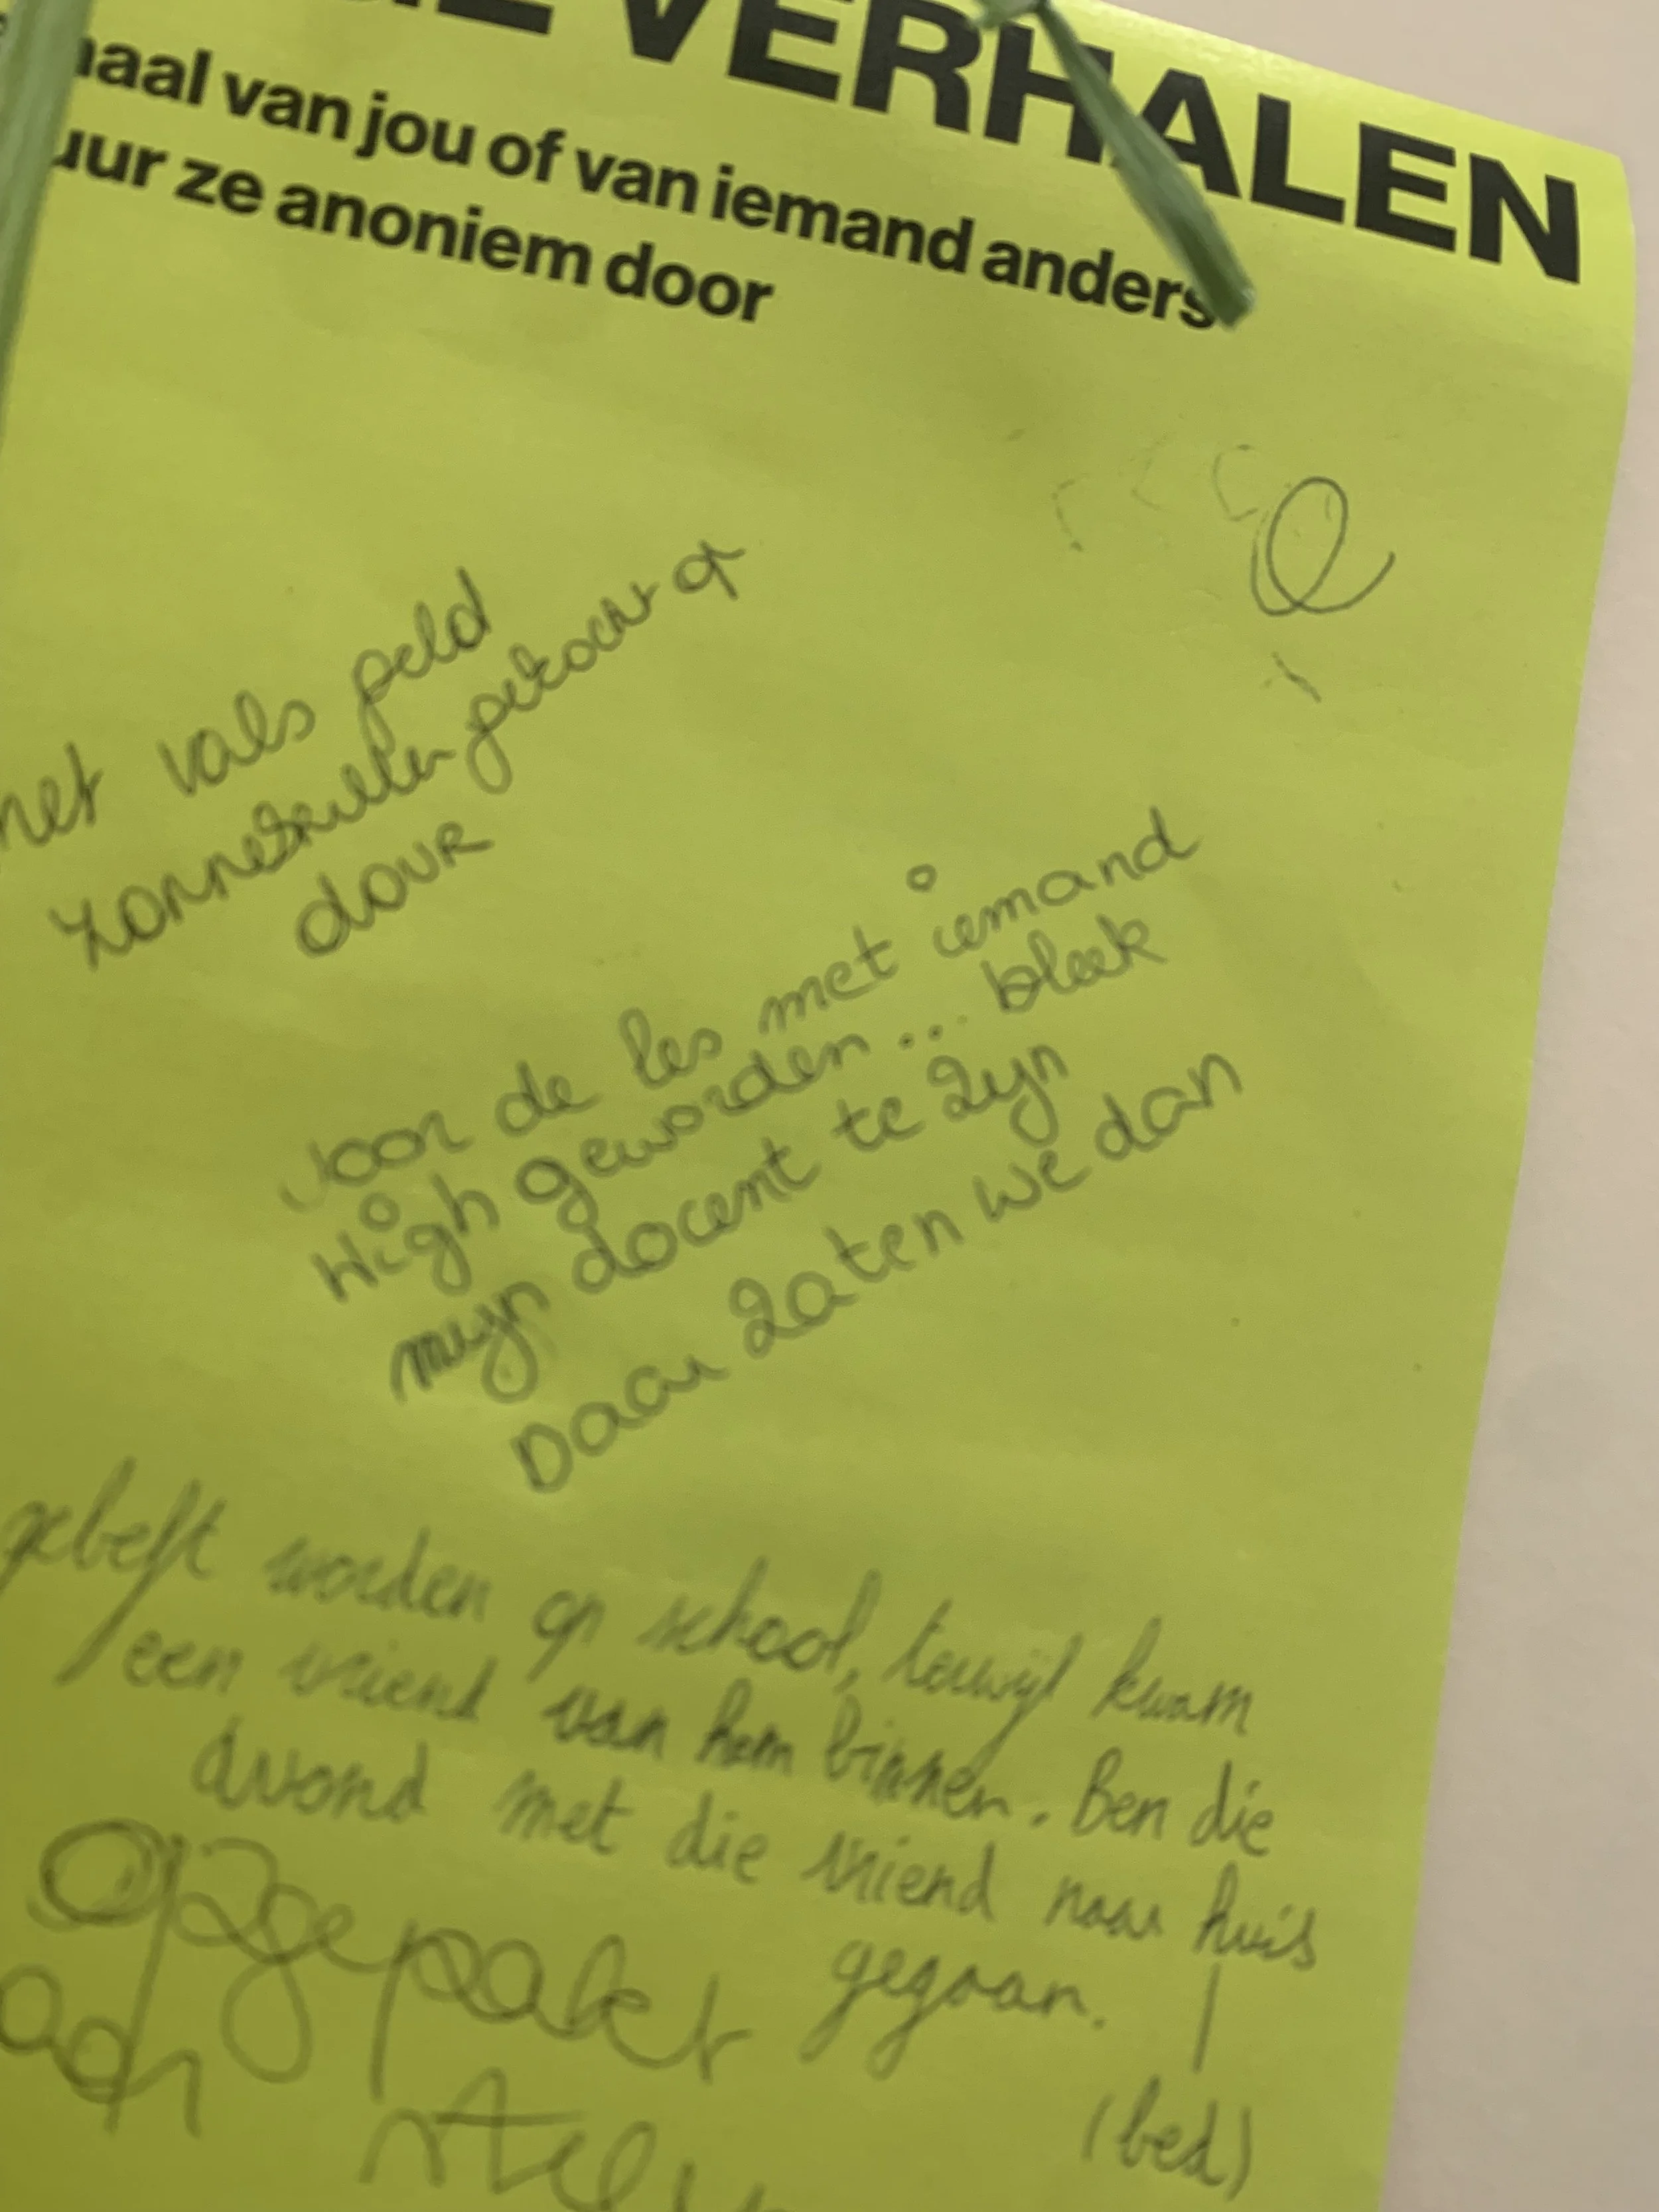 VERHALEN
haal van jou of van iemand anders
uur ze anoniem door
met vals geld
zonnebrillen gekocht op
dour
voor de les met iemand
High geworden... bleek
mijn docent te zijn
Daar zaten we dan
gebeft worden op school, terwijl kwam
een vriend van hem binnen. Ben die
avond met die vriend naar huis
gegaan.
(bed)
opgepakt